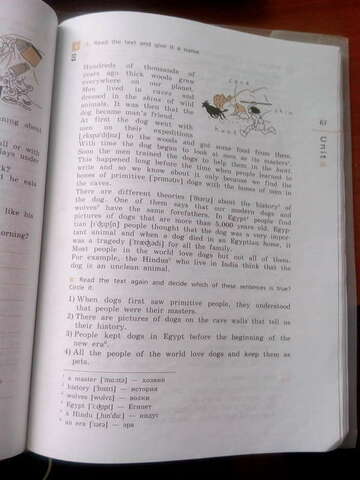 1. Read the text and give it a name.
Hundreds of thousands of
years ago thick woods grew
everywhere on our planet.
Men lived in caves and
dressed in the skins of wild
animals. It was then that the
dog became man's friend.
At first the dog went with
men on their expeditions
to the woods and got some food from them.
With time the dog began to look at men as its masters¹.
Soon the men trained the dogs to help them in the hunt.
This happened long before the time when people learned to
write and so we know about it only because we find the
bones of primitive dogs with the bones of men in
the caves.
There are different theories of the history² of
the dog. One of them says that our modern dogs and
wolves³ have the same forefathers. In Egypt⁴ people find
pictures of dogs that are more than 5,000 years old. Egyp-
tian people thought that the dog was a very impor-
tant animal and when a dog died in an Egyptian home, it
was a tragedy for all the family.
Most people in the world love dogs but not all of them.
For example, the Hindus⁵ who live in India think that the
dog is an unclean animal.
cave
skin
hunt
Read the text again and decide which of these sentences is true?
Circle it.
1) When dogs first saw primitive people, they understood
that people were their masters.
2) There are pictures of dogs on the cave walls that tell us
their history.
3) People kept dogs in Egypt before the beginning of the
new era⁶.
4) All the people of the world love dogs and keep them as
pets.
¹ a master — хозяин
² history — история
³ wolves [wulvz] — волки
⁴ Egypt — Египет
⁵ a Hindu — индус
⁶ an era — эра
67
Unit
ning about
all or with
days under
k?
d he eats
like his
orning?